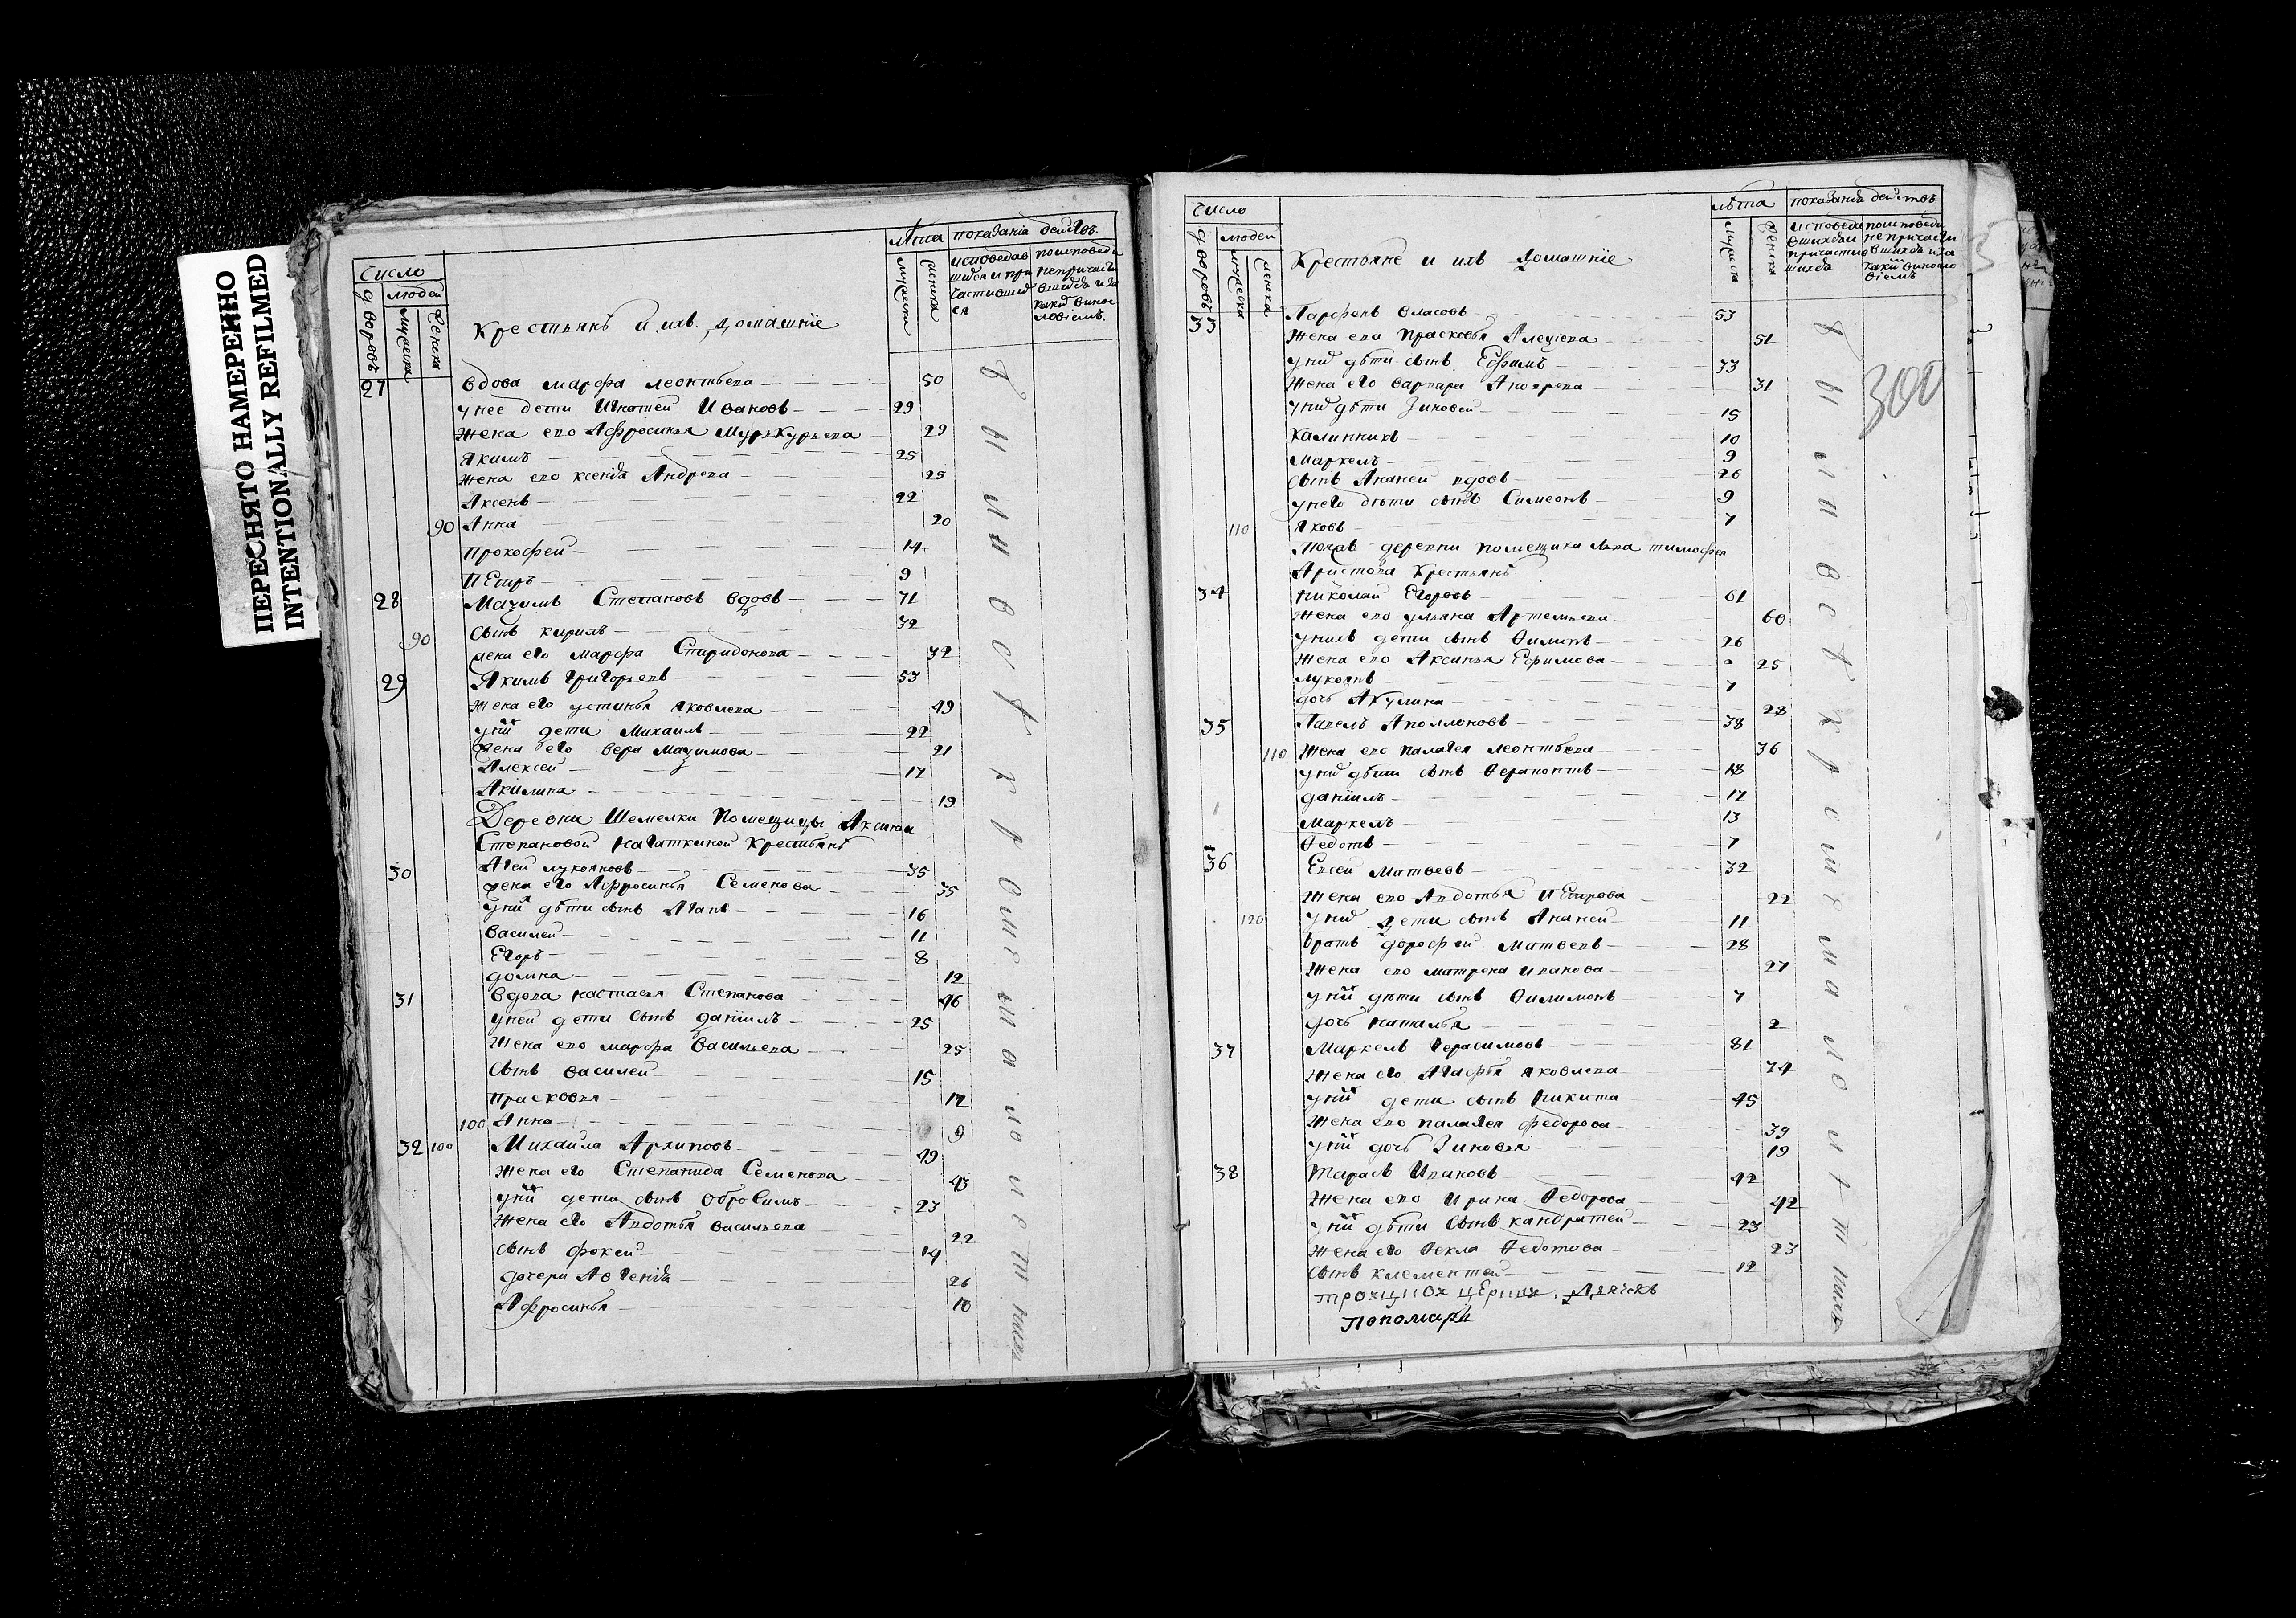 ПЕРЕСНЯТО НАМЕРЕННО
INTENTIONALLY REFILMED
Число
людей
дворовъ
мужеска
женска
Крестьянъ и ихъ домашніе
лѣта
мужеска
женска
показаніа действъ
исповедав
шихся и при
частивших
ся
27 вдова марфа леонтьева 50
у нее дети Игнатей Ивановъ 29
жена ево Афросинья 29
Якимъ 25
жена ево ксенiя Андрева 25
Аксенъ 22
90 Анна 20
Прокофей 14
Петръ 9
28 Мазимъ Степановъ вдовъ 71
90 сынъ кирилъ 32
жена его марфа Спиридонова 32
29 Якимъ Григорьевъ 53
жена его устинья яковлева 49
у них дети Михаилъ 22
жена его вера Мазимова 21
Алексей 17
Акилина 19
Деревни Шемелки Помещицы Аксиньи
Степановой Крестьянъ
30 Агей лукояновъ 35
жена его Афросинья Семенова 35
у них дѣти сынъ Агапъ 16
василей 11
Егоръ 8
домна 12
31 вдова настасья Степанова 46
у ней дети сынъ данiилъ 25
жена ево марфа васильева 25
сынъ василей 15
прасковья 12
100 Анна 9
32 100 Михаила Архиповъ 49
жена его Степанида Семенова 43
у них дети сынъ 23
жена его Авдотья васильева 22
сынъ фокей 14
дочери 26
Афросинья 10
Число
людей
дворовъ
мужеска
женска
Крестьяне и ихъ домашніе
лѣта
мужеска
женска
показаніа действъ
300
33 Парфенъ власовъ 53
жена ево Прасковья Алексiева 51
у них дѣти сынъ Ефимъ 33
жена его варвара Андрева 31
у них дѣти Зиновей 15
Калинникъ 10
маркелъ 9
сынъ Ананей вдовъ 26
у него дѣти сынъ Симеонъ 9
110 яковъ 7
деревни помещика льва тимофея
Аристова Крестьянъ
34 николай Егоровъ 61
жена ево ульяна Артемьева 60
у нихъ дети сынъ Филипъ 26
жена ево Аксинья Ефимова 25
лукоянъ 7
дочь Акулина 28
35 Павелъ Аполлоновъ 38
110 жена ево палагея леонтьева 36
у них дѣти сынъ Ферапонтъ 18
данiилъ 17
Маркелъ 13
Федотъ 7
36 Евсей Матвеевъ 32
жена ево Авдотья Петрова 22
120 у них дети сынъ Ананей 11
братъ дорофей Матвевъ 28
жена ево матрена иванова 27
у них дѣти сынъ Филимонъ 7
дочь наталья 2
37 Маркелъ Герасимовъ 81
жена его Агафья яковлева 74
у них дети сынъ Никита 45
жена ево палагея федорова 39
у них дочь Зиновья 19
38 Тарасъ Ивановъ 42
жена ево Ирина Федорова 42
у них дѣти сынъ кандратей 23
жена его Фекла Федотова 23
сынъ клементей 12
Пономарь